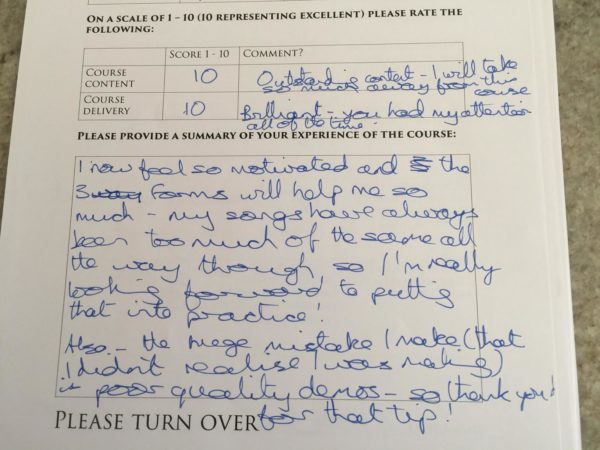 ON A SCALE OF 1 – 10 (10 REPRESENTING EXCELLENT) PLEASE RATE THE
FOLLOWING:
SCORE 1 - 10 COMMENT?
COURSE CONTENT 10 Outstanding content - I will take
so much away from this
course
COURSE DELIVERY 10 Brilliant - you had my attention
all of the time.
PLEASE PROVIDE A SUMMARY OF YOUR EXPERIENCE OF THE COURSE:
I now feel so motivated and the
3 forms will help me so
much - my songs have always
been too much of the same all
the way through so I'm really
looking forward to putting
that into practice!
Also - the huge mistake I make (that
I didn't realise I was making)
is poor quality demos - so thank you
for that tip!
PLEASE TURN OVER